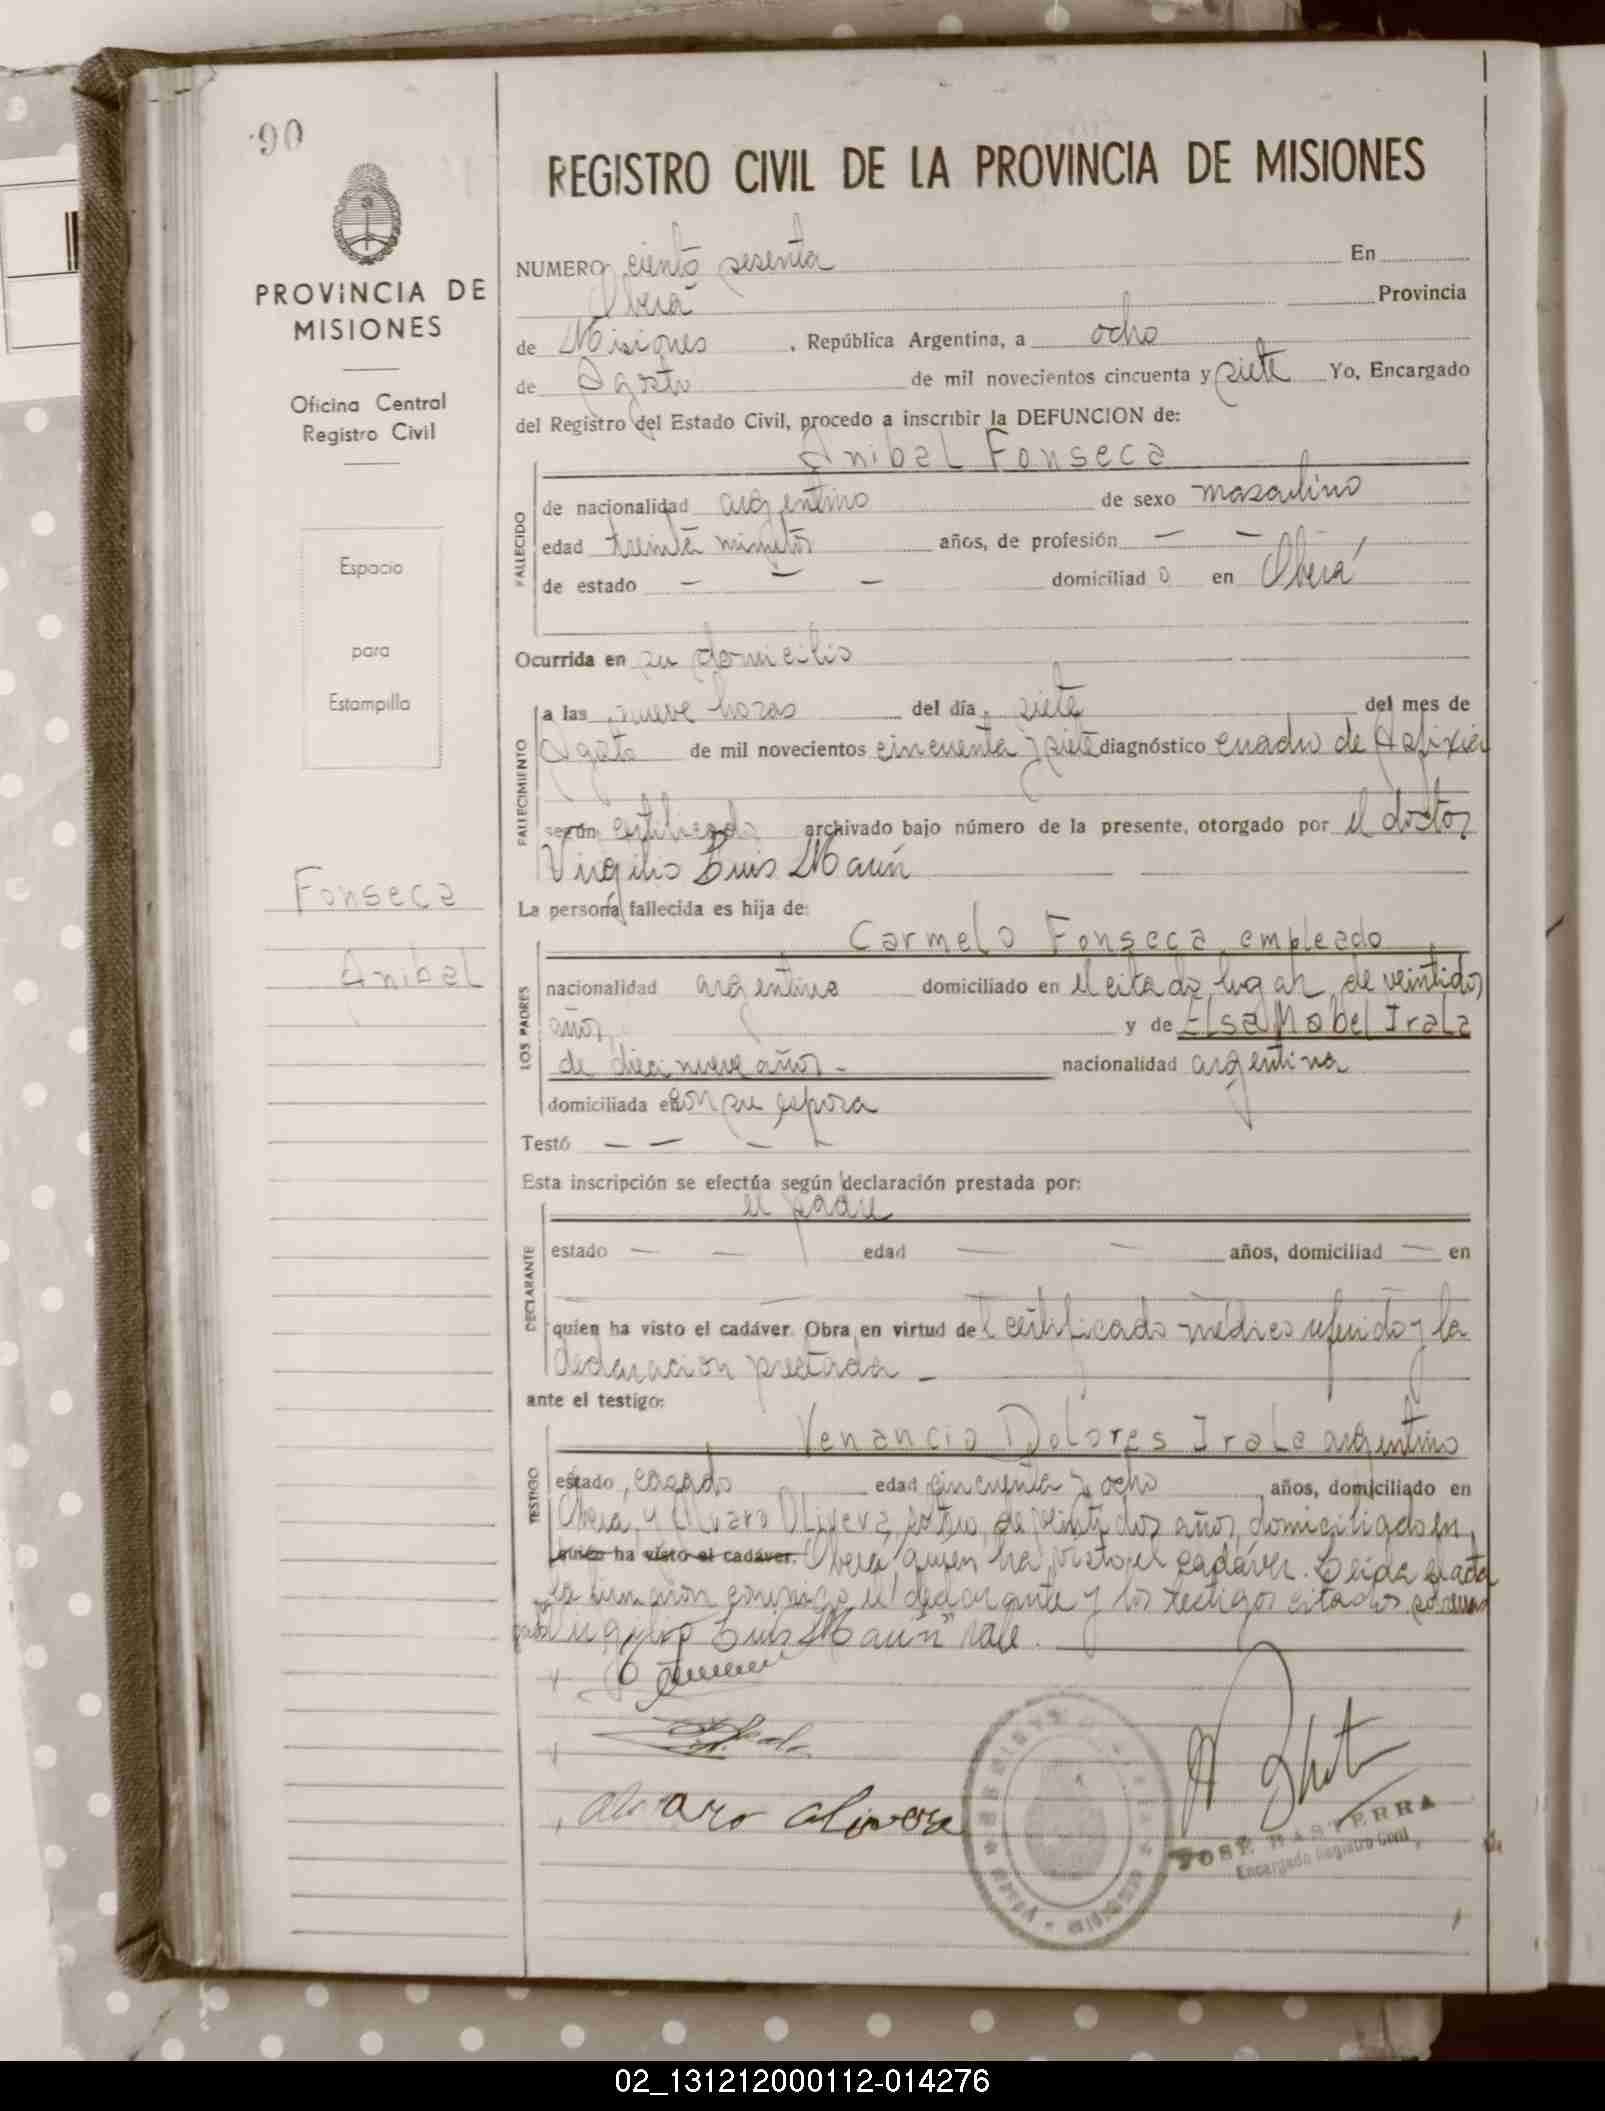 90
REGISTRO CIVIL DE LA PROVINCIA DE MISIONES
PROVINCIA DE
MISIONES
Oficina Central
Registro Civil
Espacio
para
Estampilla
Fonseca
Anibal
NUMERO ciento sesenta En
Oberá Provincia
de Misiones , República Argentina, a ocho
de Agosto de mil novecientos cincuenta y siete Yo, Encargado
del Registro del Estado Civil, procedo a inscribir la DEFUNCION de:
Anibal Fonseca
FALLECIDO
de nacionalidad argentino de sexo masculino
edad treinta minutos años, de profesión — —
de estado — — — domiciliado en Oberá
Ocurrida en su domicilio
FALLECIMIENTO
a las nueve horas del día siete del mes de
Agosto de mil novecientos cincuenta y siete diagnóstico cuadro de Asfixia
según certificado archivado bajo número de la presente, otorgado por el doctor
Virgilio Luis Maun
La persona fallecida es hija de:
LOS PADRES
Carmelo Fonseca, empleado
nacionalidad argentino domiciliado en el citado lugar, de veintidos
años, y de Elsa Mabel Irala
de diecinueve años - nacionalidad argentina
domiciliada en con su esposo
Testó — — — —
Esta inscripción se efectúa según declaración prestada por:
DECLARANTE
el padre
estado — — edad — — años, domiciliad — en
quien ha visto el cadáver. Obra en virtud del certificado médico referido y la
declaracion prestada —
ante el testigo:
TESTIGO
Venancio Dolores Irala argentino
estado, casado edad cincuenta y ocho años, domiciliado en
Oberá, y Alvaro Olivera, soltero, de veintidos años, domiciliado en
quien ha visto el cadáver. Oberá quien ha visto el cadáver. Leida el acta
la firmaron conmigo el declarante y los testigos citados
Virgilio Luis Maun" vale.
Alvaro Olivera
JOSE BASTERRA
Encargado Registro Civil
02_131212000112-014276